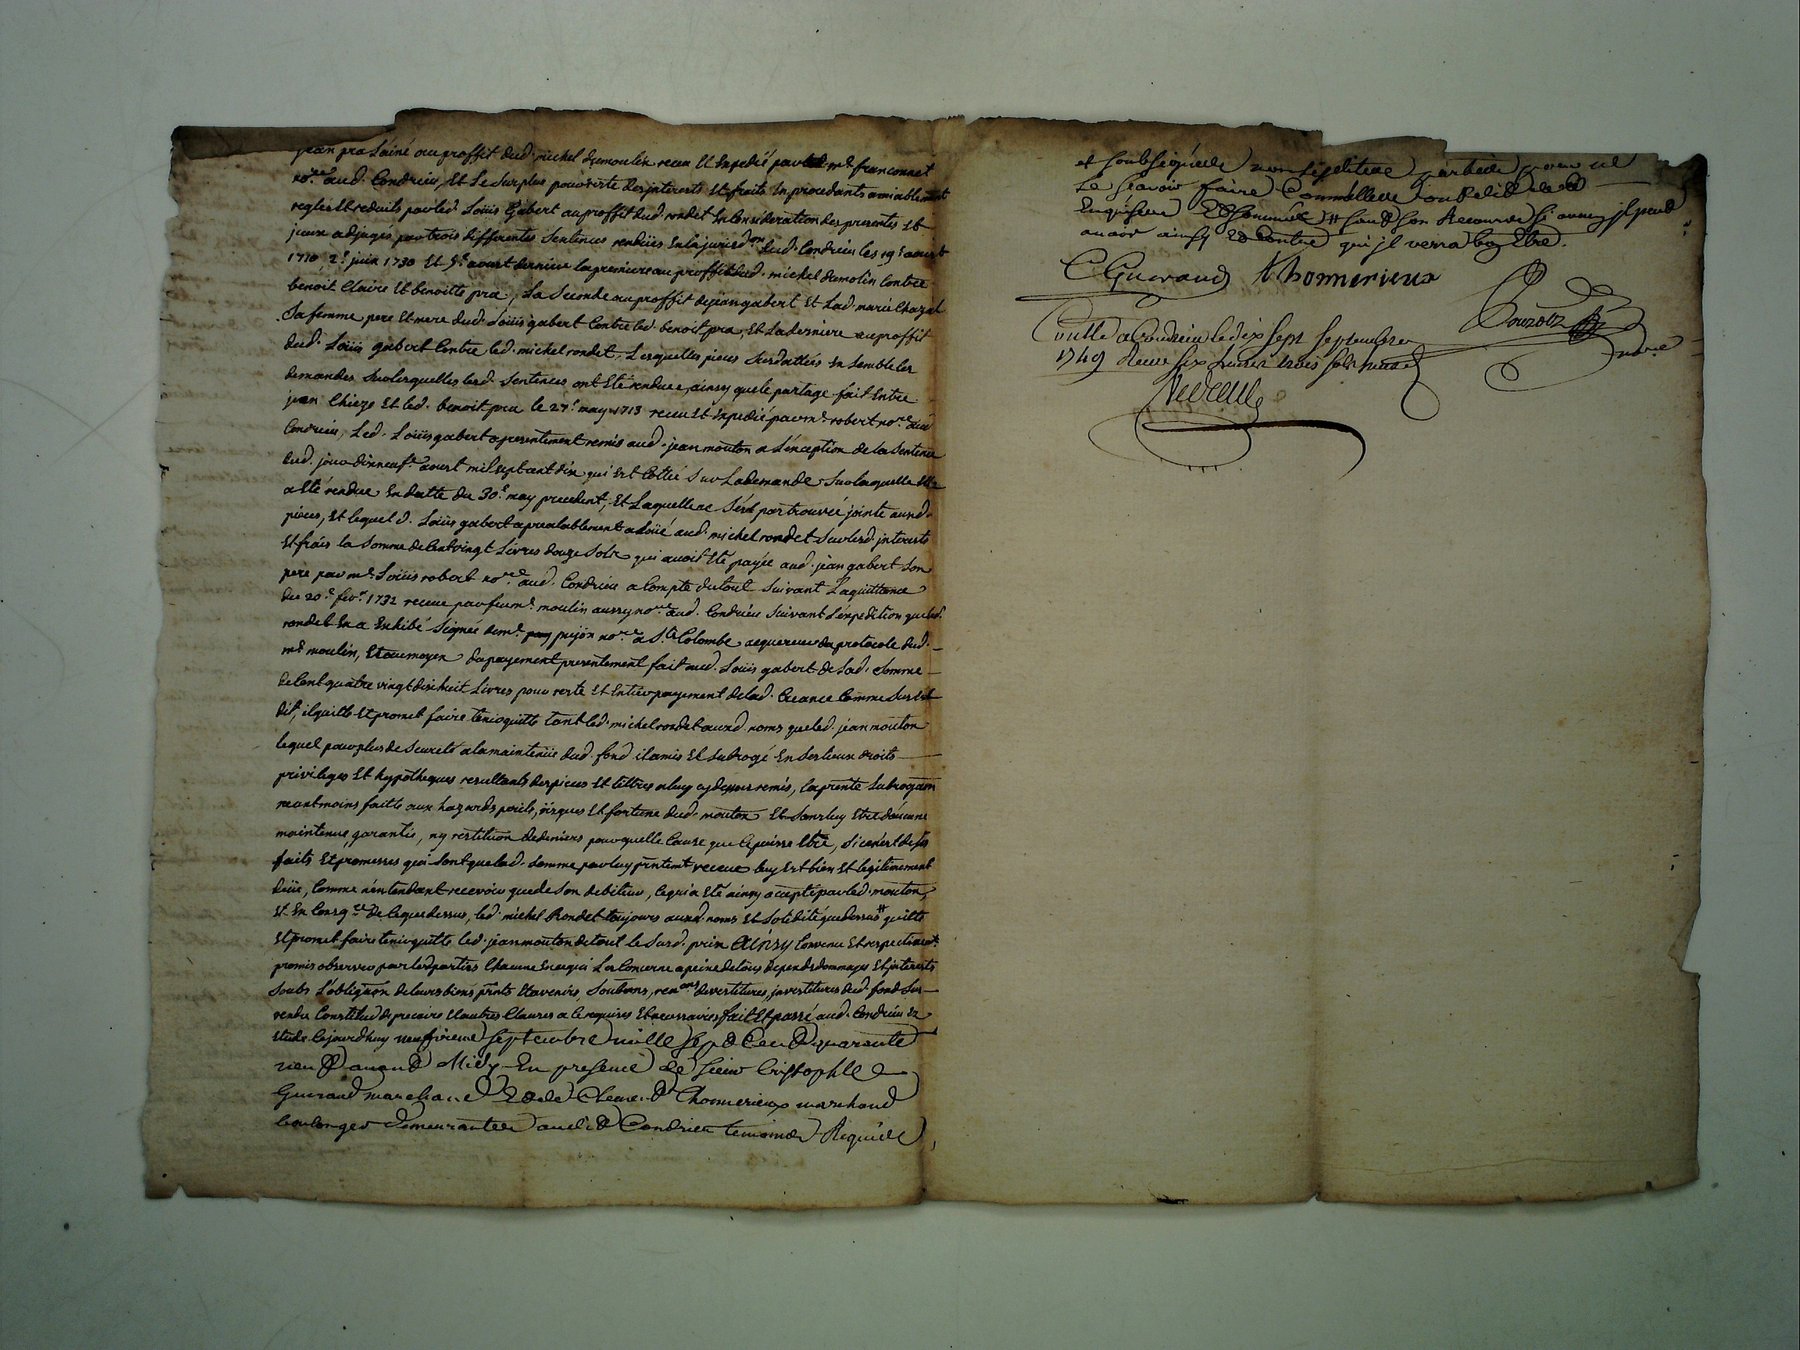 jean pra L'ainé au proffit dud. michel demoulin receu Et Expedié par led. me franconnet
nore aud. Condrieu, Et Le Surplus pour reste des interests Et frais En procedants amiablement
reglés Et reduits par led. Loüis Gabert au proffit dud. rondet En Consideration des presentes Et
jceux adjugés par trois differentes Sentences rendües En la jurisdon dud. Condrieu les 19e aoust
1710, 2e juin 1730 Et 5e aoust dernier la premiere au proffit dud. michel demolin Contre
benoit Claire Et benoitte pra, La Seconde au proffit de jean gabert Et Lad. marie Chazal
Sa femme, pere Et mere dud. Loüis gabert Contre led. benoit pra, Et La derniere au proffit
dud. Loüis gabert Contre led. michel rondet, Lesquelles pieces Susdattées En Semble les
demandes Sur lesquelles lesd. Sentences ont Eté rendues, ainsy que le partage fait Entre
jean Chieze Et led. benoit pra le 27e may 1713 receu Et Expedié par me robert nore aud.
Condrieu, Led. Loüis gabert a presentement remis aud. jean mouton a L'exception de la Sentence
dud. jour dixneufe aoust mil sept cent dix qui Est Collée Sur La demande Sur laquelle Elle
a Eté rendue En datte du 30e may precedent, Et Laquelle ne S'est pas trouvée jointe ausd.
pieces, Et lequel d. Loüis gabert a prealablement alloüé aud. michel rondet Sur lesd. jnterests
Et frais la Somme de Cent vingt Livres douze Sols qui avoit Eté payée aud. jean gabert Son
pere par me Loüis robert nore aud. Condrieu a Compte du tout Suivant La quittance
du 20e fevr 1732 receue par feu me moulin aussy nore aud. Condrieu Suivant L'expedition que led.
rondet En a Exhibé Signée de me prijon nore a Ste Colombe acquereur du protocole dud.
me moulin, Et au moyen du payement presentement fait aud. Loüis gabert de Lad. Somme
de Cent quatre vingt dixhuit Livres pour reste Et Entier payement de lad. Creance Comme Sus Est
dit, il quitte Et promet faire tenir quitte tant led. michel rondet ausd. noms que led. jean mouton
lequel pour plus de Seureté a la maintenüe dud. fond il a mis Et Subrogé En Ses lieux droits
privileges Et hypotheques resultants des pieces Et tittres a luy cy dessus remis, la prnte Subrogaon
neantmoins faitte aux hazards perils, risques Et fortune dud. mouton Et Sans luy Etre d'aucune
maintenue, garantie, ny restitution de deniers pour quelle Cause que Ce puisse Etre, Si ce n'est de Ses
faits Et promesses qui Sont que lad. Somme par luy prntemt receue luy Est bien Et legitimement
düe, Comme n'entendant recevoir que de Son debiteur, Ce qui a Eté ainsy accepté par led. mouton,
Et En Consqce de Ce que dessus, led. michel Rondet toujours ausd. noms Et Solidité que dessus # quitte
Et promet faire tenir quitte led. jean mouton de tout le Susd. prix Ainsy Convenu Et respectivemt
promis observer par lesd. parties Chacune En ce qui La Concerne a peine de tous depends dommages Et jnterests
Soubs L'obligaon de leurs biens prnts Et avenirs, Soubmns, renons devestitures, jnvestitures dud. fond Sus
vendu Constitud de precaire Et autres Clauses a Ce requises Et necessaires fait Et passé aud. Condrieu En
Etude Cejourd'huy neufvieme Septembre mille Sept Cent quarante
neuf avant Midy En presence de Sieur Cristophle
Guiraud marchand Et de Clement Thomerieux marchand
boulenger demeurantes audit Condrieu temoins Requis
et Soubsignés non les parties pour ne
Le Scavoir faire
Enquises Et Sommées #
avoir ainsy Et Contre qui jl verra bon Etre.
C Guiraud Thomerieux
Bouzon
nore
Conllé a Condrieu le dix sept Septembre
1749 Receu six livres trois sols